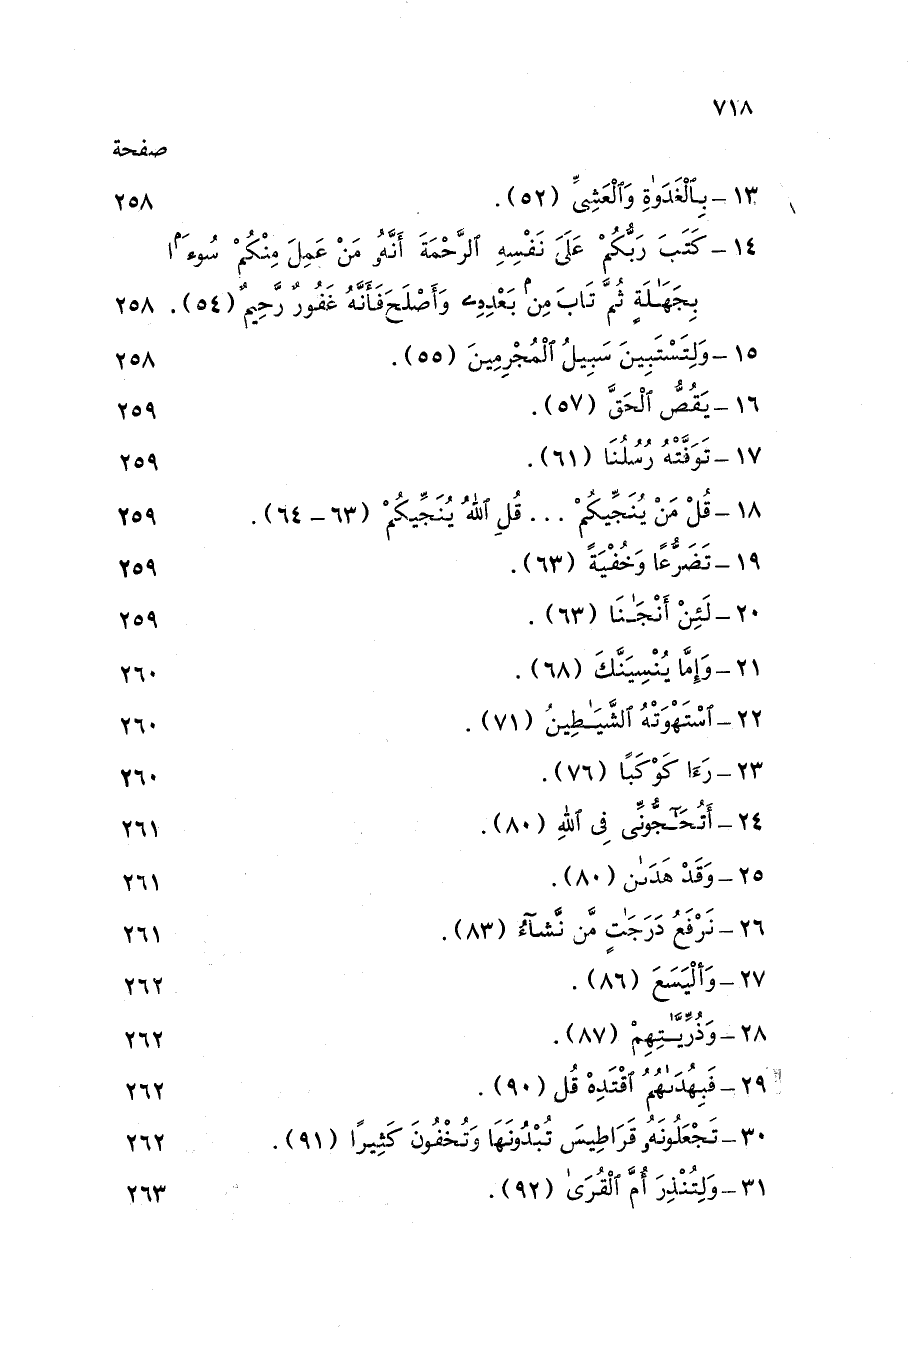 ٧١٨
صفحة
١٣ - بِٱلْغَدَوٰةِ وَٱلْعَشِىِّ (٥٢). ٢٥٨
١٤ - كَتَبَ رَبُّكُمْ عَلَىٰ نَفْسِهِ ٱلرَّحْمَةَ أَنَّهُۥ مَنْ عَمِلَ مِنْكُمْ سُوءَۢا
بِجَهَـٰلَةٍ ثُمَّ تَابَ مِنۢ بَعْدِهِۦ وَأَصْلَحَ فَأَنَّهُۥ غَفُورٌ رَّحِيمٌ (٥٤). ٢٥٨
١٥ - وَلِتَسْتَبِينَ سَبِيلُ ٱلْمُجْرِمِينَ (٥٥). ٢٥٨
١٦ - يَقُصُّ ٱلْحَقَّ (٥٧). ٢٥٩
١٧ - تَوَفَّتْهُ رُسُلُنَا (٦١). ٢٥٩
١٨ - قُلْ مَنْ يُنَجِّيكُمْ ... قُلِ ٱللهُ يُنَجِّيكُمْ (٦٣ - ٦٤). ٢٥٩
١٩ - تَضَرُّعًا وَخُفْيَةً (٦٣). ٢٥٩
٢٠ - لَئِنْ أَنْجَـٰنَا (٦٣). ٢٥٩
٢١ - وَإِمَّا يُنْسِيَنَّكَ (٦٨). ٢٦٠
٢٢ - ٱسْتَهْوَتْهُ ٱلشَّيَـٰطِينُ (٧١). ٢٦٠
٢٣ - رَءَا كَوْكَبًا (٧٦). ٢٦٠
٢٤ - أَتُحَـٰٓجُّونِّى فِى ٱللهِ (٨٠). ٢٦١
٢٥ - وَقَدْ هَدَىٰنِ (٨٠). ٢٦١
٢٦ - نَرْفَعُ دَرَجَـٰتٍ مَّن نَّشَآءُ (٨٣). ٢٦١
٢٧ - وَٱلْيَسَعَ (٨٦). ٢٦٢
٢٨ - وَذُرِّيَّـٰتِهِمْ (٨٧). ٢٦٢
٢٩ - فَبِهُدَىٰهُمُ ٱقْتَدِهْ قُل (٩٠). ٢٦٢
٣٠ - تَجْعَلُونَهُۥ قَرَاطِيسَ تُبْدُونَهَا وَتُخْفُونَ كَثِيرًا (٩١). ٢٦٢
٣١ - وَلِتُنْذِرَ أُمَّ ٱلْقُرَىٰ (٩٢). ٢٦٣